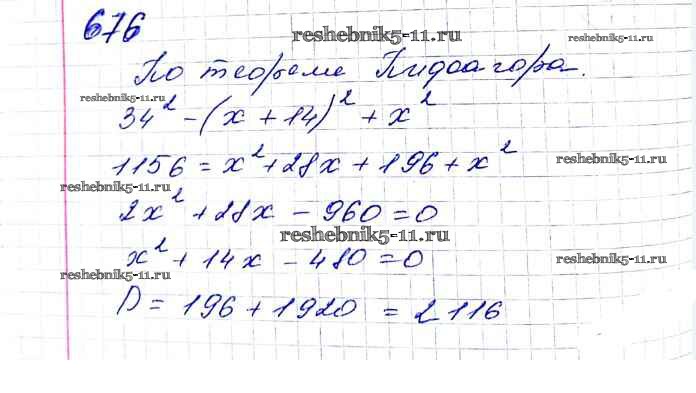 676
reshebnik5-11.ru
По теореме Пифагора.
reshebnik5-11.ru
34² - (x + 14)² + x²
1156 = x² + 28x + 196 + x²
reshebnik5-11.ru
reshebnik5-11.ru
2x² + 28x - 960 = 0
reshebnik5-11.ru
x² + 14x - 480 = 0
reshebnik5-11.ru
reshebnik5-11.ru
D = 196 + 1920 = 2116